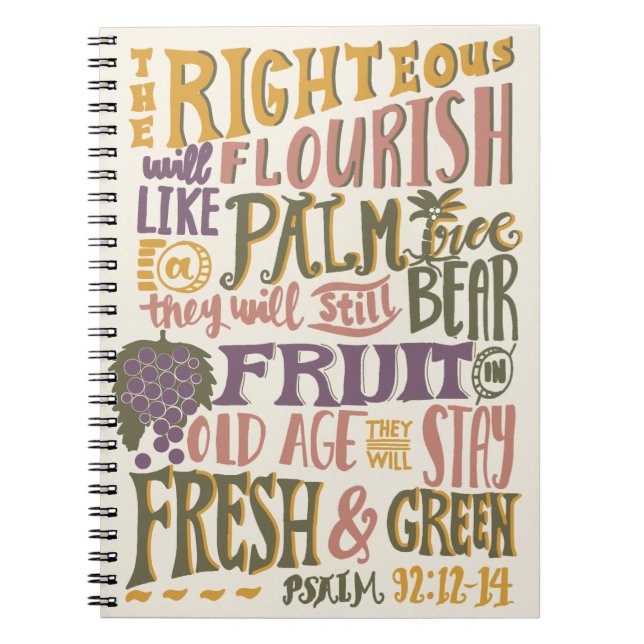 THE RIGHTEOUS
will FLOURISH
LIKE
a PALM tree
they will still BEAR
FRUIT IN
OLD AGE THEY WILL STAY
FRESH & GREEN
PSALM 92:12-14